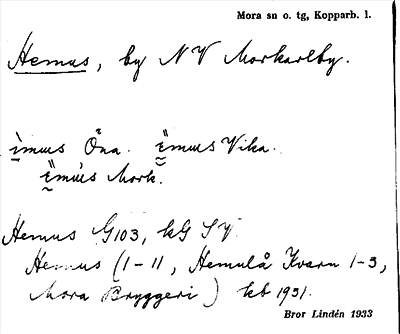 Mora sn o. tg, Kopparb. l.
Hemus, by N V Morkarlby.
ìmus Öna. Ëmus Vika.
Ëmùs Mork.
Hemus G103, kG S V.
Hemus (1-11, Hemulå Kvarn 1-3,
Mora Bryggeri) kb 1931.
Bror Lindén 1933